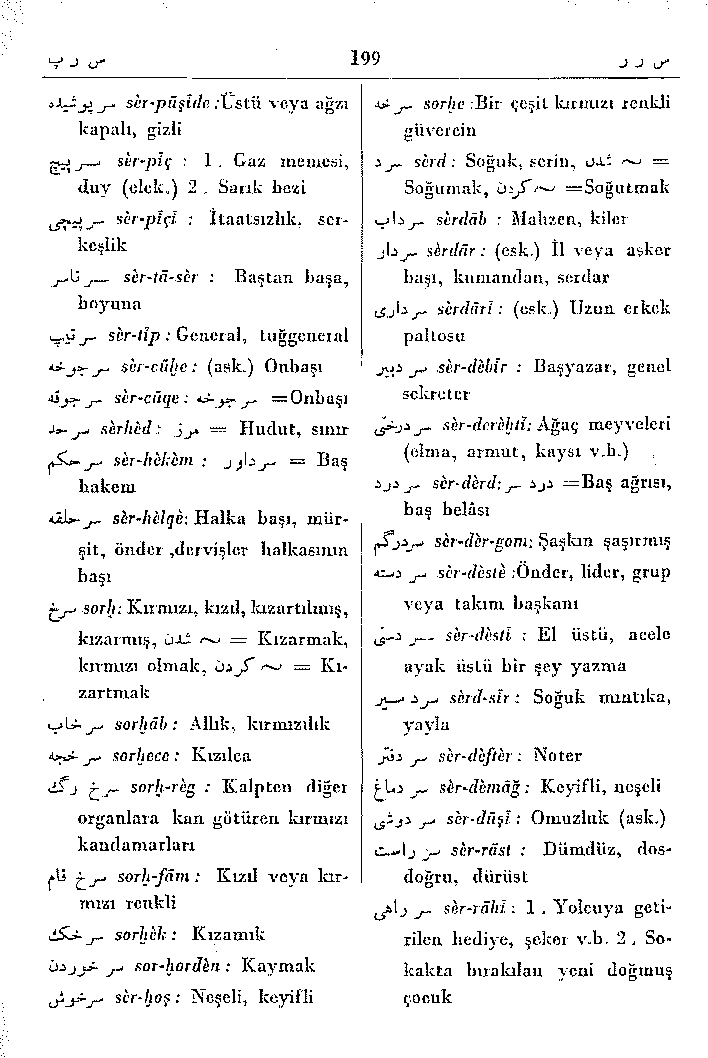 س ر پ
199
س ر ر
سر پوشیده sèr-pūşīde :Üstü veya ağzı
kapalı, gizli
سرپیچ sèr-pīç : 1 . Gaz memesi,
duy (elek.) 2 . Sarık bezi
سر پیچی sèr-pīçī : İtaatsızlık, ser-
keşlik
سر تاسر sèr-tā-sèr : Baştan başa,
boyuna
سر تیپ sèr-tīp : General, tuğgeneral
سر جوخه sèr-cūḫe : (ask.) Onbaşı
سر جوقه sèr-cūqe : سر جوخه =Onbaşı
سر حد sèrhèd : مرز = Hudut, sınır
سر حکم sèr-hèkèm : سرداور = Baş
hakem
سر حلقه sèr-hèlqè: Halka başı, mür-
şit, önder ,dervişler halkasının
başı
سرخ sorḫ: Kırmızı, kızıl, kızartılmış,
kızarmış, شدن ~ = Kızarmak,
kırmızı olmak, کردن ~ = Kı-
zartmak
سر خاب sorḫāb : Allık, kırmızılık
سر خجه sorḫece : Kızılca
سرخ رگ sorḫ-règ : Kalpten diğer
organlara kan götüren kırmızı
kandamarları
سرخ فام sorḫ-fām : Kızıl veya kır-
mızı renkli
سر خک sorḫèk : Kızamık
سر خوردن sor-ḫordèn : Kaymak
سرخوش sèr-ḫoş : Neşeli, keyifli
سر خه sorḫe :Bir çeşit kırmızı renkli
güvercin
سرد sèrd : Soğuk, serin, شدن ~ =
Soğumak, کردن ~ =Soğutmak
سرداب sèrdāb : Mahzen, kiler
سردار sèrdār : (esk.) İl veya asker
başı, kumandan, serdar
سرداری sèrdārī : (esk.) Uzun erkek
paltosu
سر دبیر sèr-dèbīr : Başyazar, genel
sekreter
سر درختی sèr-derèḫtī: Ağaç meyveleri
(elma, armut, kaysı v.b.)
سر درد sèr-dèrd: درد سر =Baş ağrısı,
baş belâsı
سردرگم sèr-dèr-gom: Şaşkın şaşırmış
سر دسته sèr-dèstè :Önder, lider, grup
veya takım başkanı
سر دستی sèr-dèstī : El üstü, acele
ayak üstü bir şey yazma
سرد سیر sèrd-sīr : Soğuk mıntıka,
yayla
سر دفتر sèr-dèftèr : Noter
سر دماغ sèr-dèmāğ : Keyifli, neşeli
سر دوشی sèr-dūşī : Omuzluk (ask.)
سر راست sèr-rāst : Dümdüz, dos-
doğru, dürüst
سر راهی sèr-rāhī : 1 . Yolcuya geti-
rilen hediye, şeker v.b. 2 . So-
kakta bırakılan yeni doğmuş
çocuk